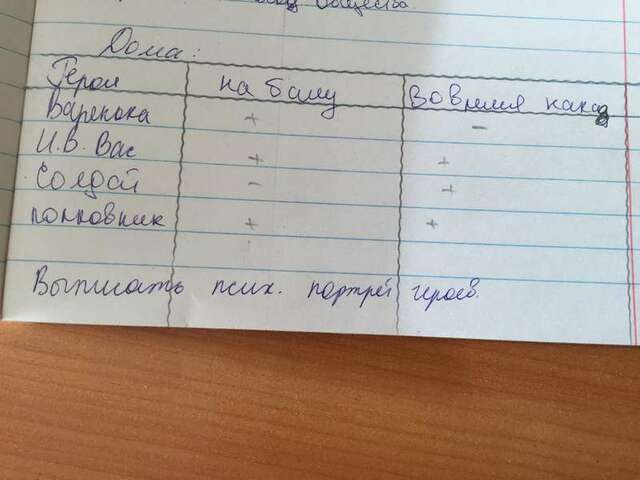 общество
Дома:
Герои на балу Во время наказ
Варенька + -
И.В. Вас + +
Солдат - +
полковник + +
Выписать псих. портрет героев.